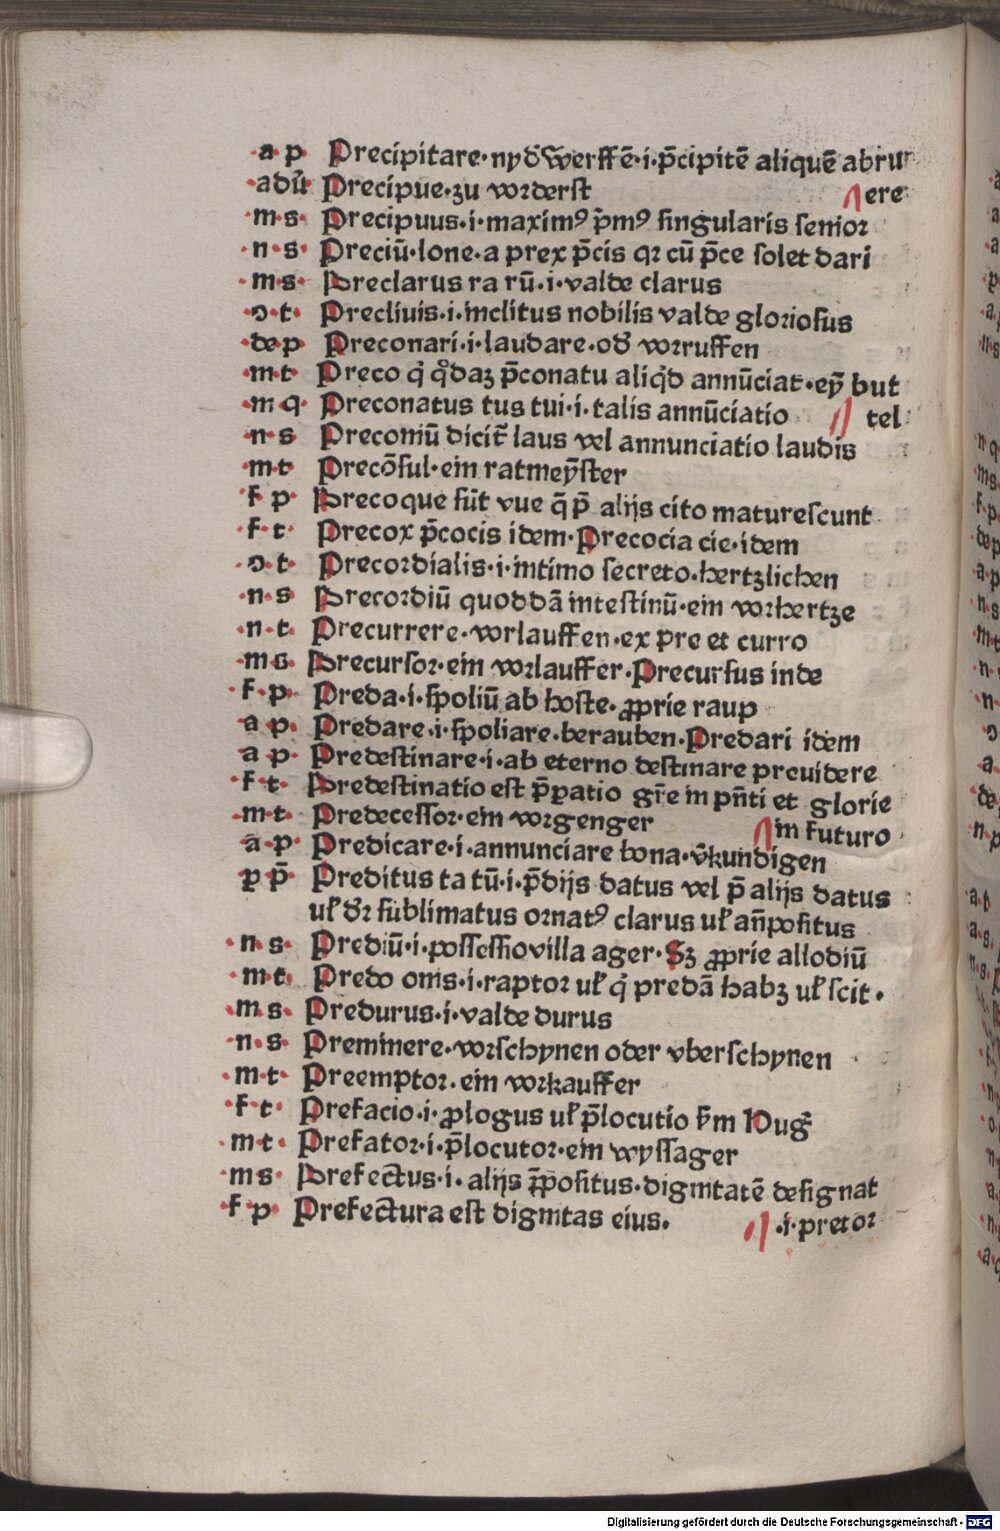 ·a p· Precipitare·nyd̄werffē·i·p̄cipitē aliquē abru
·adū· Precipue·zu vorderst ere
·m·s· Precipuus·i·maximꝰ p̄mꝰ singularis senior
·n·s· Preciū·lone·a prex p̄cis qꝛ cū p̄ce solet dari
·m·s· Preclarus ra rū·i·valde clarus
·ɔ·t· Preclivis·i·inclitus nobilis valde gloriosus
·de p· Preconari·i·laudare·od̄ vorruffen
·m·t· Preco q̇ q̇daꝫ p̄conatu aliq̇d annūciat·eyn̄ but
·m q· Preconatus tus tui·i·talis annūciatio tel
·n·s· Preconiū dicit̄ laus vel annunciatio laudis
·m·t· Precōsul·ein ratmeȳster
·f p· Precoque sūt vue q̄ p̄ alijs cito maturescunt
·f·t· Precox p̄cocis idem·Precocia cie·idem
·ɔ·t· Precordialis·i·intimo secreto·hertzlichen
·n·s· Precordiū quoddā intestinū·ein vorhertze
·n·t· Precurrere·vorlauffen·ex pre et curro
·m s· Precursor·ein vorlauffer·Precursus inde
·f·p· Preda·i·spoliū ab hoste·ꝓprie raup
·a p· Predare·i·spoliare·berauben·Predari idem
·a p· Predestinare·i·ab eterno destinare previdere
·f t· Predestinatio est p̄ꝑatio gr̄e in pn̄ti et glorie
·m·t· Predecessor·ein vorgenger in futuro
·a·p· Predicare·i·annunciare bona·v̄kundigen
·ꝑ p̄· Preditus ta tū·i·p̄dijs datus vel p̄ alijs datus
ul̄ d̄r sublimatus ornatꝰ clarus ul̄ an̄positus
·n s· Prediū·i·possessio villa ager·Sꝫ ꝓprie allodiū
·m·t· Predo onis·i·raptor ul̄ q̇ predā habꝫ ul̄ scit·
·m s· Predurus·i·valde durus
·n·s· Preminere·vorschynen oder vberschynen
·m·t· Preemptor·ein vorkauffer
·f·t· Prefacio·i·ꝓlogus ul̄ p̄locutio s̄m Huḡ
·m t· Prefator·i·p̄locutor·ein wyssager
·m s· Prefectus·i·alijs p̄positus·dignitatē designat
·f p· Prefectura est dignitas eius· ·i·pretor
Digitalisierung gefördert durch die Deutsche Forschungsgemeinschaft - DFG